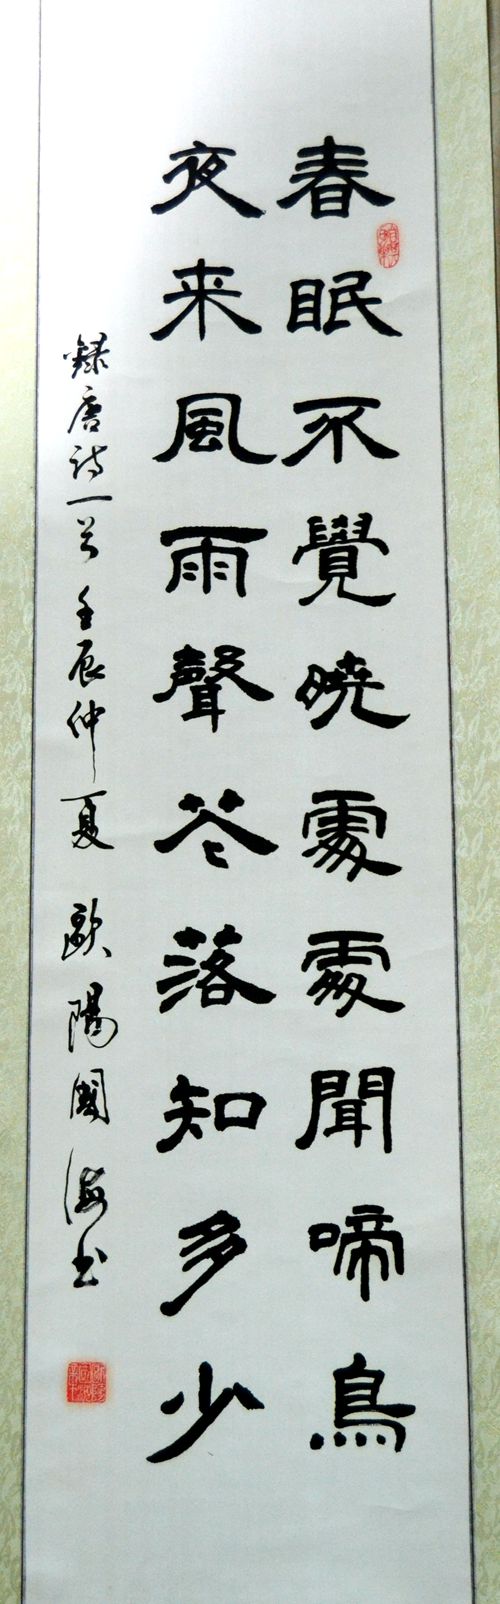 春眠不覺曉處處聞啼鳥
夜来風雨聲花落知多少
錄唐诗一首 壬辰仲夏 歐陽國海书